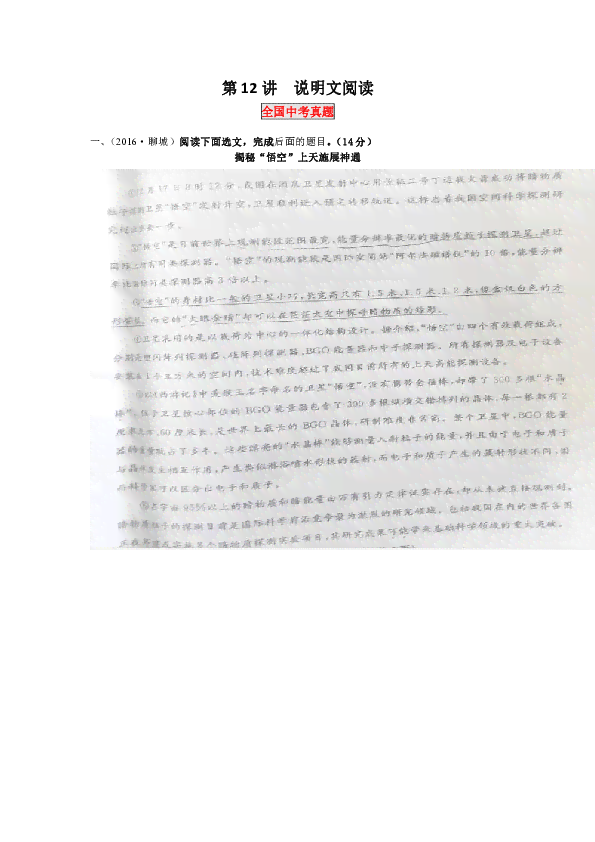 第12讲 说明文阅读
全国中考真题
一、（2016·聊城）阅读下面选文，完成后面的题目。（14分）
揭秘“悟空”上天施展神通
①12月17日8时12分，我国在酒泉卫星发射中心用长征二号丁运载火箭成功将暗物质
粒子探测卫星“悟空”发射升空，卫星顺利进入预定转移轨道。这标志着我国空间科学探测研
究迈出一步。
②“悟空”是目前世界上观测能段范围最宽、能量分辨率最优的暗物质粒子探测卫星，超过
国际上所有同类探测器。“悟空”的观测能段是国际空间站“阿尔法磁谱仪”的10倍，能量分辨
率比国际同类探测器高3倍以上。
③“悟空”的身材比一般的卫星小巧，长宽高只有1.5米、1.5米、1.2米，像盒状白色的方
而它的“火眼金睛”却可以在茫茫太空中探寻暗物质的踪影。
④卫星采用的是以载荷为中心的一体化结构设计。据介绍，“悟空”由四个有效载荷组成，
分别是塑闪阵列探测器、硅阵列探测器、BGO能量器和中子探测器。所有探测器及电子设备
安装在1个立方米的空间内，技术难度超过了我国目前所有的上天高能探测设备。
⑤以《西游记》中美猴王名字命名的卫星“悟空”，没有携带金箍棒，却带了300多根“水晶
棒”。位于卫星核心部位的BGO能量器包含了300多根纵横交错排列的晶体，每一根都有2
厘米60厘米长，是世界上最长的BGO晶体，研制难度非常高。整个卫星中，BGO能量
器的重量就占了多半。这些漂亮的“水晶棒”能够测量入射粒子的能量，并且由于电子和质子
与晶体发生相互作用，产生类似淋浴喷水形状的簇射，而电子和质子产生的簇射形状不同，因
而科学家可以区分出电子和质子。
⑥占宇宙95%以上的暗物质和暗能量由万有引力定律证实存在，却从未被直接观测到。
暗物质粒子的探测目前是国际科学界正竞争最为激烈的研究领域。包括我国在内的世界各国
正在筹建或实施多个暗物质探测实验项目，其研究成果可能带来基础科学领域的重大突破。